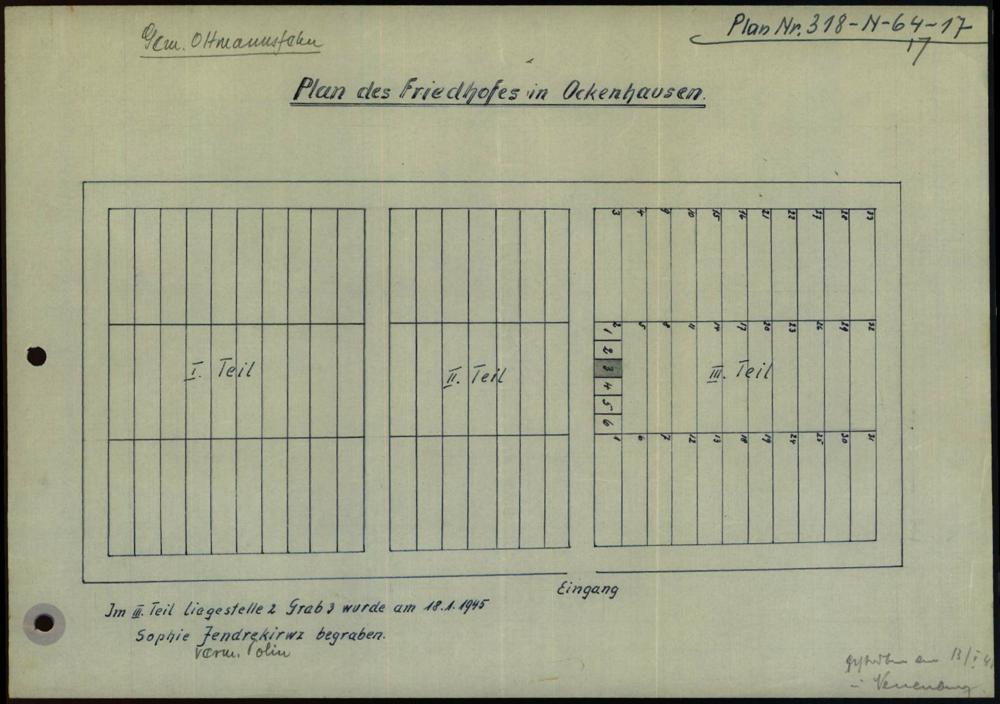 Gem. Oltmannsfehn
Plan Nr. 318-N-64-17
17
Plan des Friedhofes in Ockenhausen.
3 4 9 10 15 16 21 22 27 28 33
2 5 8 11 14 17 20 23 26 29 32
1
2
3
4
5
6
I. Teil
II. Teil
III. Teil
1 6 7 12 13 18 19 24 25 30 31
Eingang
Im III. Teil Liegestelle 2 Grab 3 wurde am 18.1.1945
Sophie Jendrekirwz begraben.
verm. Polin
gestorben am 13/I 45
in